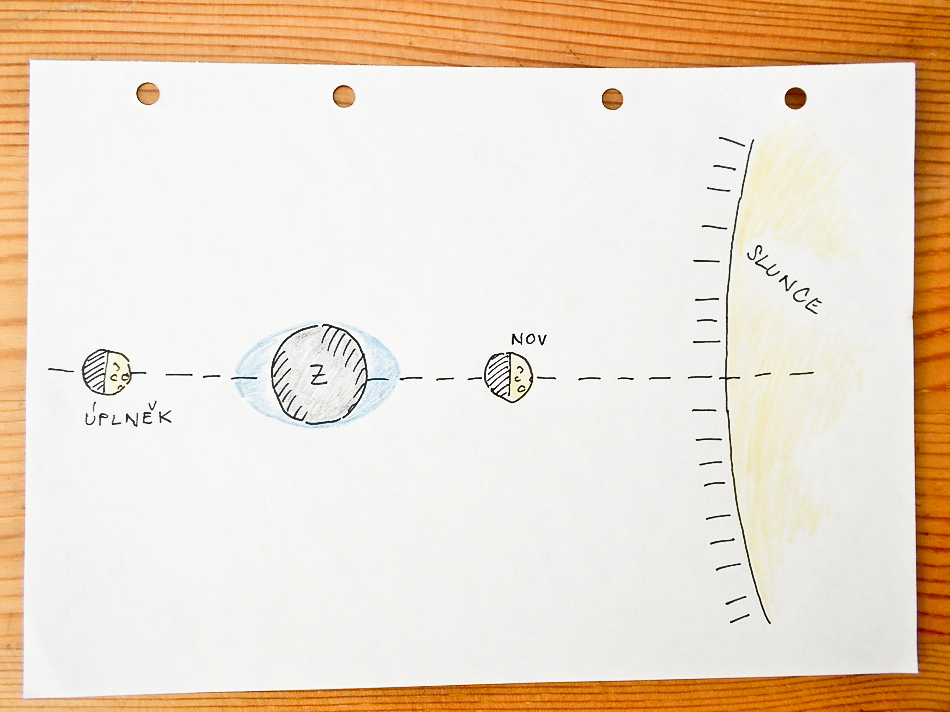 SLUNCE
NOV
Z
ÚPLNĚK